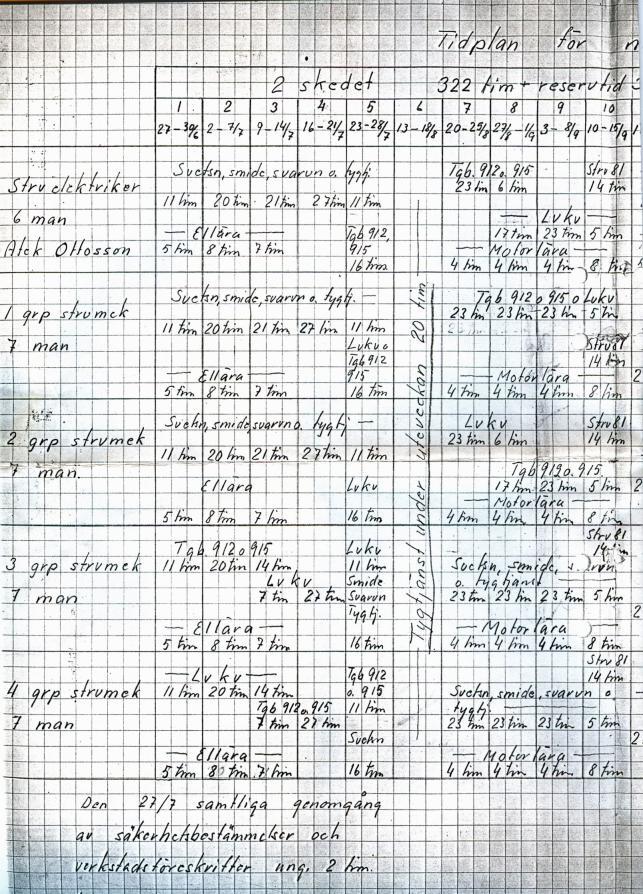 Tidplan för n
2 skedet 322 tim + reservtid
1 2 3 4 5 6 7 8 9 10
27-30/6 2-7/7 9-14/7 16-21/7 23-28/7 13-18/8 20-25/8 27/8-1/9 3-8/9 10-15/9
Svetsn, smide, svarvn o. tygtj. Tgb. 912 o. 915 Strv 81
Strv elektriker 23 tim 6 tim 14 tim
11 tim 20 tim 21 tim 27 tim 11 tim
6 man — Lvkv —
— Ellära — Tgb 912, 17 tim 23 tim 5 tim
Alek Ottosson 5 tim 8 tim 7 tim 915 — Motorlära —
16 tim 4 tim 4 tim 4 tim 8 tim
Svetsn, smide, svarvn o. tygtj. — Tgb 912 o 915 o Lvkv
1 grp strvmek 23 tim 23 tim 23 tim 5 tim
11 tim 20 tim 21 tim 27 tim 11 tim
7 man Lvkv o Strv 81
Tgb 912 14 tim
— Ellära — 915 — Motorlära — 2
5 tim 8 tim 7 tim 16 tim 4 tim 4 tim 4 tim 8 tim
Svetsn, smide, svarvn o. tygtj — Lvkv Strv 81
2 grp strvmek 23 tim 6 tim 14 tim
11 tim 20 tim 21 tim 27 tim 11 tim
7 man. Tgb 912 o. 915
Ellära Lvkv 17 tim 23 tim 5 tim 2
— Motorlära —
5 tim 8 tim 7 tim 16 tim 4 tim 4 tim 4 tim 8 tim
Tygtjänst under uteveckan 20 tim
Strv 81
Tgb. 912 o 915 Lvkv 14 tim
3 grp strvmek 11 tim 20 tim 14 tim 11 tim Svetsn, smide, svarvn
Lvkv Smide o. tygtjänst
7 man 7 tim 27 tim Svarvn 23 tim 23 tim 23 tim 5 tim
Tygtj. 2
— Ellära — — Motorlära —
5 tim 8 tim 7 tim 16 tim 4 tim 4 tim 4 tim 8 tim
Strv 81
— Lvkv — Tgb 912 14 tim
4 grp strvmek 11 tim 20 tim 14 tim o. 915 Svetsn, smide, svarvn o.
Tgb 912 o. 915 11 tim tygtj.
7 man 7 tim 27 tim 23 tim 23 tim 23 tim 5 tim
Svetsn 2
— Ellära — — Motorlära —
5 tim 8 tim 7 tim 16 tim 4 tim 4 tim 4 tim 8 tim
Den 27/7 samtliga genomgång
av säkerhetsbestämmelser och
verkstadsföreskrifter ung. 2 tim.